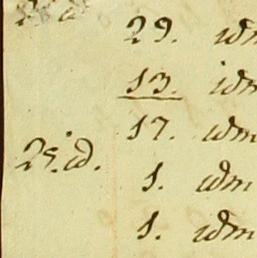 29. idm
13. idm
17. idm
25. id.
1. idm
1. idm